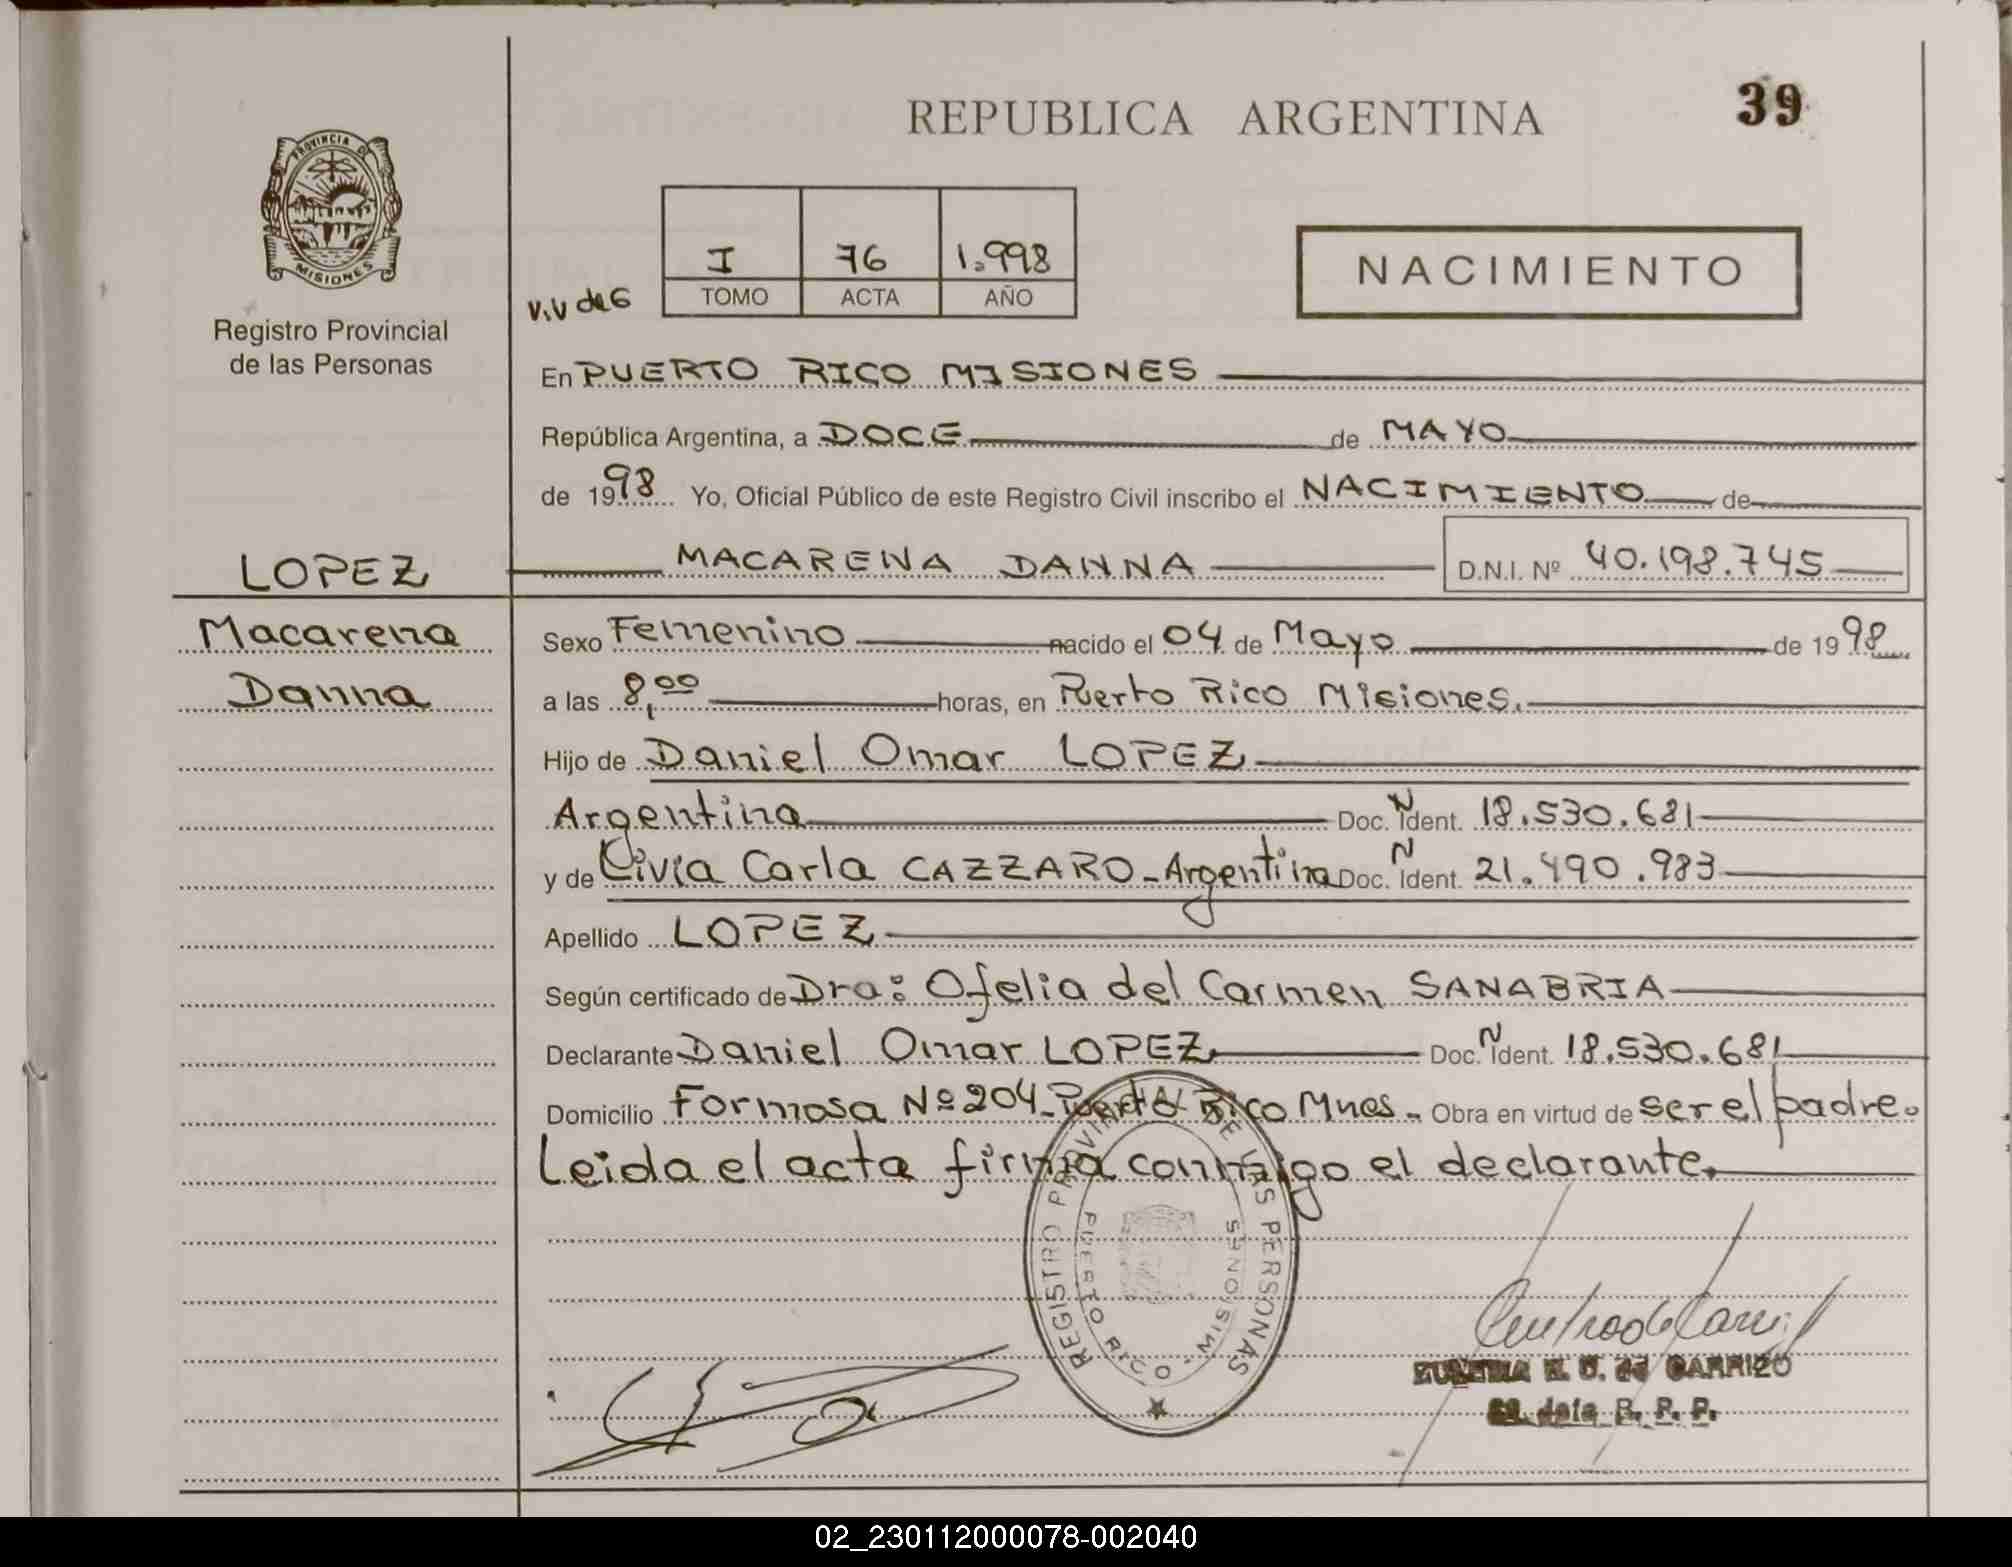 REPUBLICA ARGENTINA
39
PROVINCIA DE
MISIONES
Registro Provincial
de las Personas
I 76 1.998
TOMO ACTA AÑO
V.V de 6
NACIMIENTO
En PUERTO RICO MISIONES
República Argentina, a DOCE de MAYO
de 1998 Yo, Oficial Público de este Registro Civil inscribo el NACIMIENTO de
LOPEZ
MACARENA DANNA D.N.I. Nº 40.198.745
Macarena
Danna
Sexo Femenino nacido el 04 de Mayo de 1998
a las 8,00 horas, en Puerto Rico Misiones.
Hijo de Daniel Omar LOPEZ
Argentina Doc. N Ident. 18.530.681
y de Livia Carla CAZZARO - Argentina Doc. N Ident. 21.490.983
Apellido LOPEZ
Según certificado de Dra: Ofelia del Carmen SANABRIA
Declarante Daniel Omar LOPEZ Doc. N Ident. 18.530.681
Domicilio Formosa Nº 204 - Puerto Rico Mnes - Obra en virtud de ser el padre.
Leida el acta firma conmigo el declarante.
REGISTRO PROVINCIAL DE LAS PERSONAS
PUERTO RICO - MISIONES
de CARRIZO
R. P. P.
02_230112000078-002040